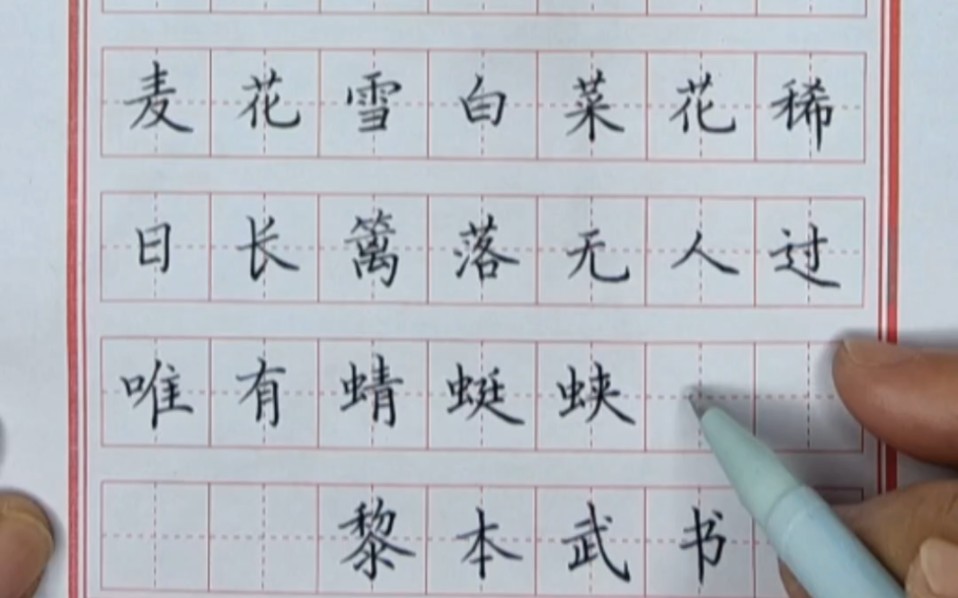 麦花雪白菜花稀
日长篱落无人过
唯有蜻蜓蛱
黎本武书